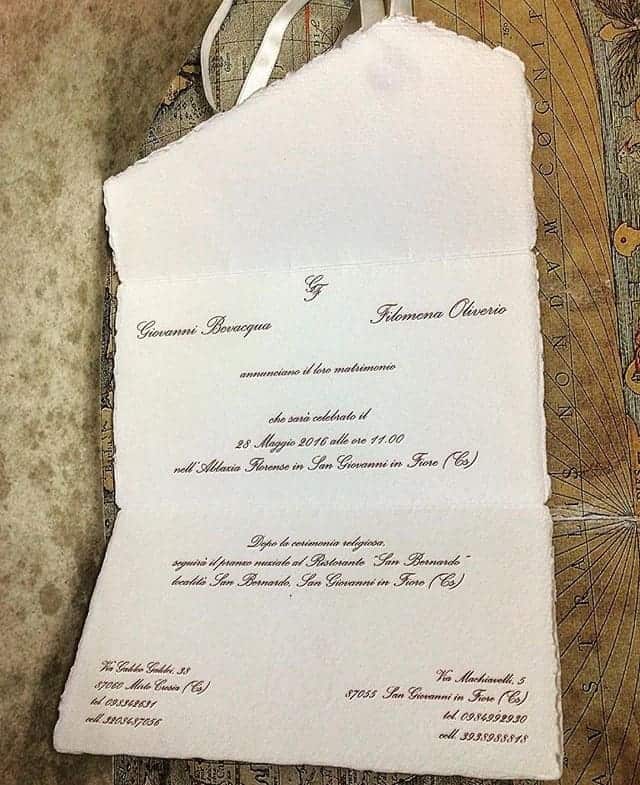 GF
Giovanni Bevacqua
Filomena Oliverio
annunciano il loro matrimonio
che sarà celebrato il
28 Maggio 2016 alle ore 11.00
nell'Abbazia Florense in San Giovanni in Fiore (Cs)
Dopo la cerimonia religiosa,
seguirà il pranzo nuziale al Ristorante "San Bernardo"
località San Bernardo, San Giovanni in Fiore (Cs)
Via Galileo Galilei, 38
87060 Mirto Crosia (Cs)
tel. 098342631
cell. 3203487056
Via Machiavelli, 5
87055 San Giovanni in Fiore (Cs)
tel. 0984992930
cell. 3938988818
NONDVM COGNIT
AVSTRALIS